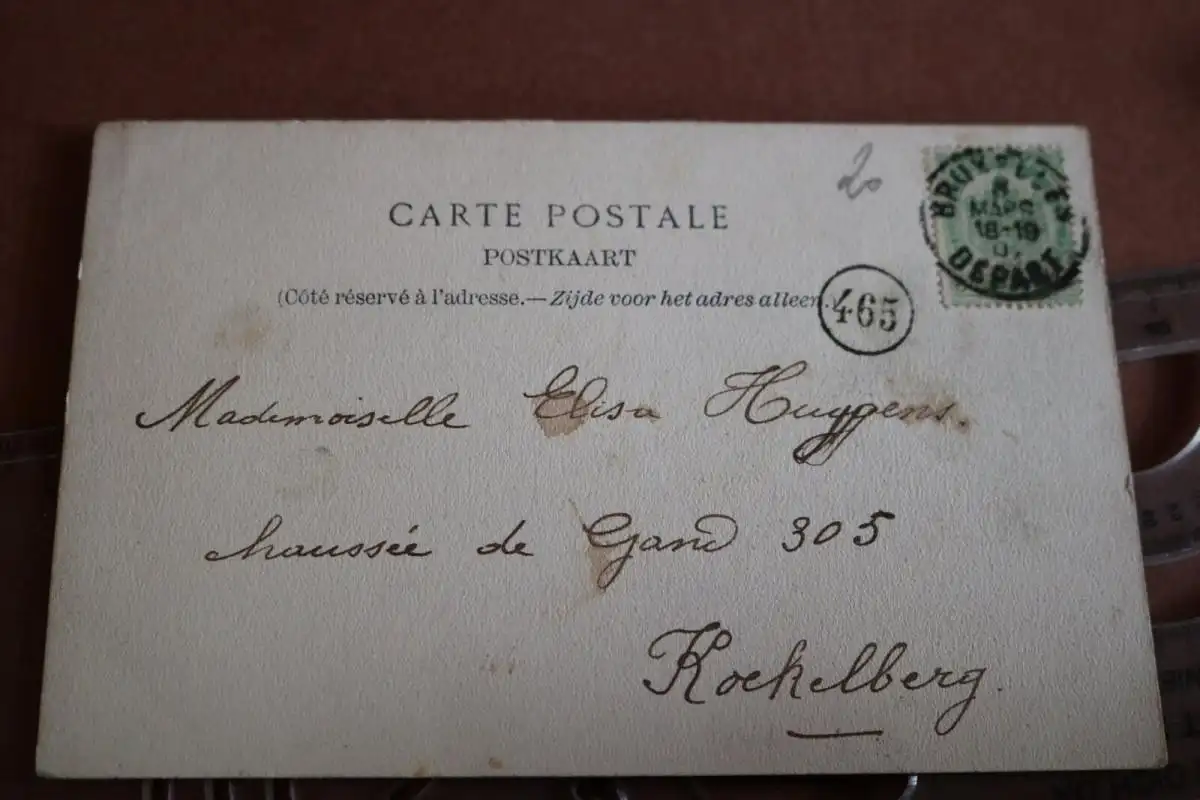 20
BRUXELLES
8
MARS
18-19
DEPART
CARTE POSTALE
POSTKAART
(Côté réservé à l'adresse.—Zijde voor het adres alleen.)
465
Mademoiselle Elisa Huygens.
chaussée de Gand 305
Koekelberg.